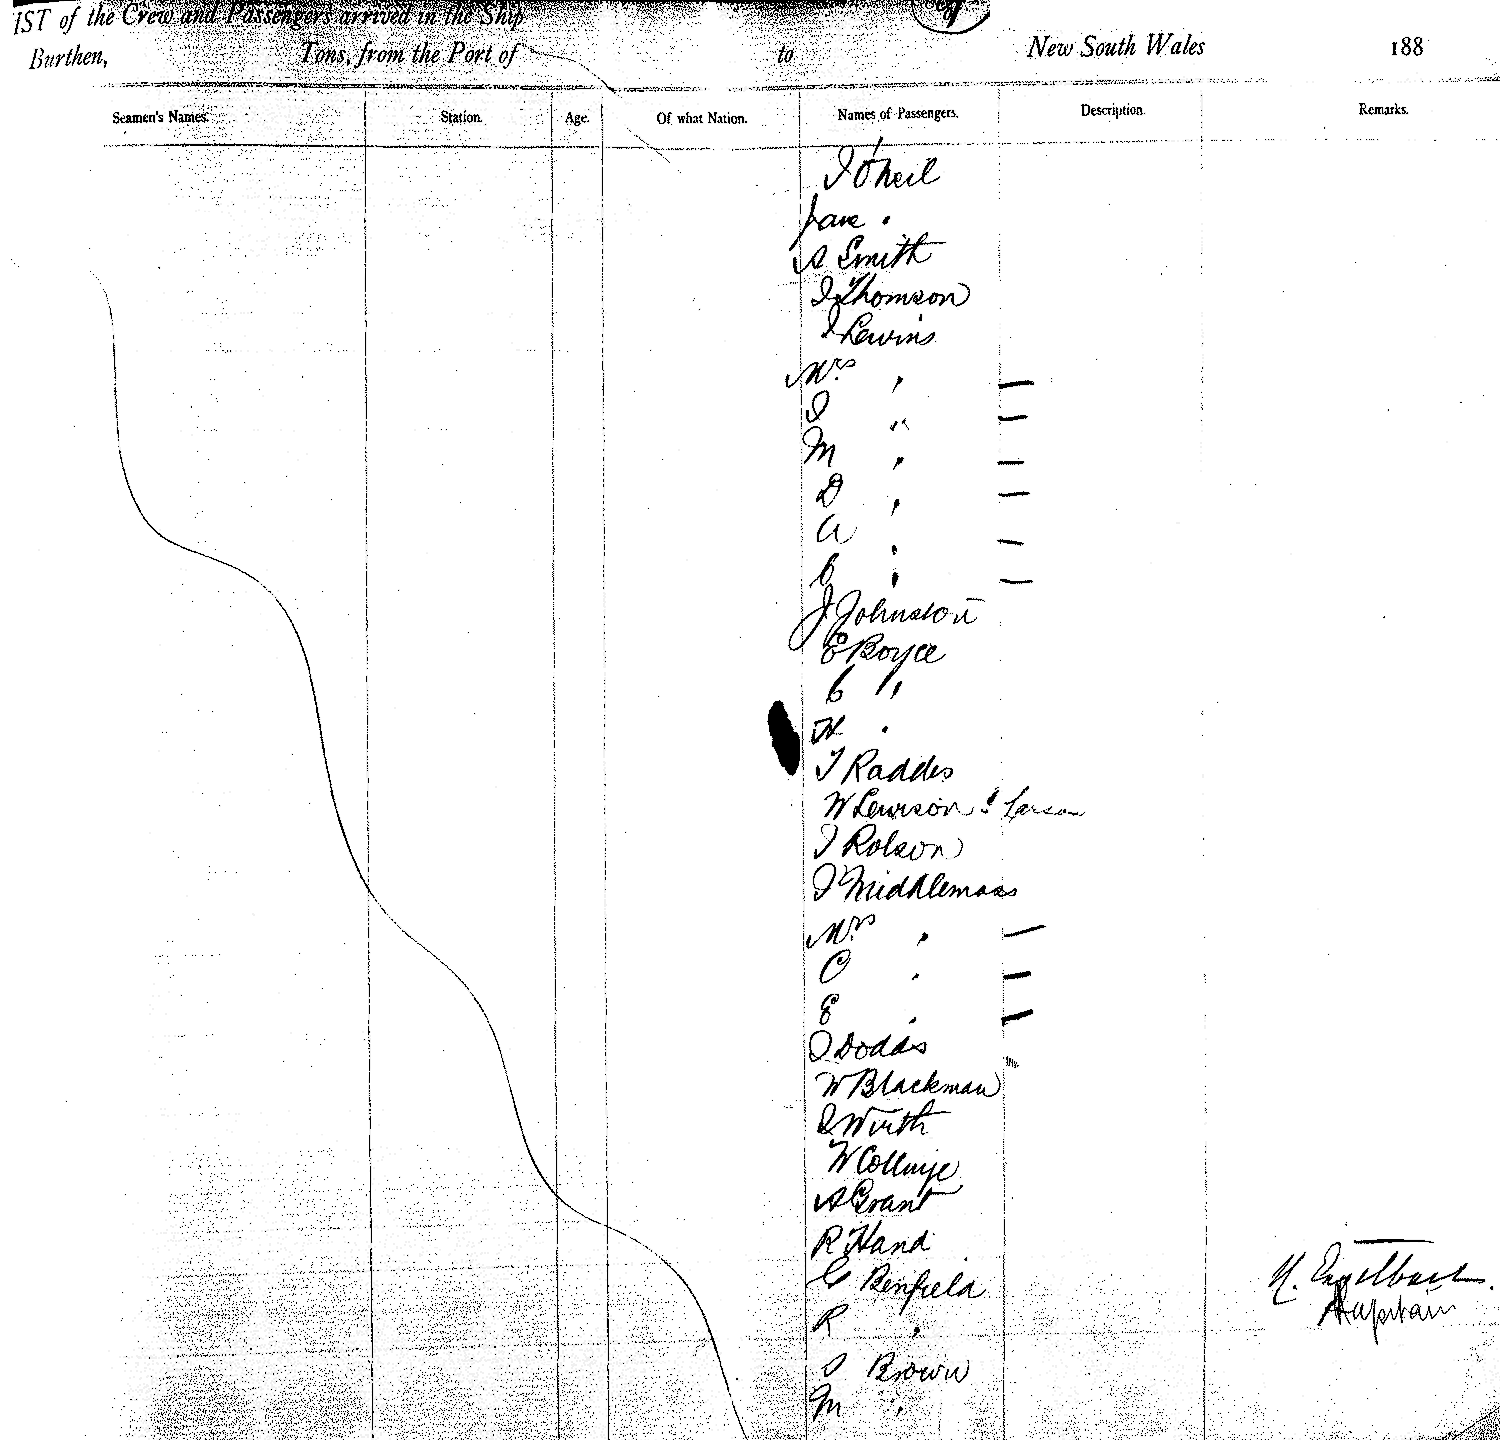 IST of the Crew and Passengers arrived in the Ship
Burthen, Tons, from the Port of to New South Wales 188
Seamen's Names. Station. Age. Of what Nation. Names of Passengers. Description. Remarks.
J O'Neil
Jane "
A Smith
J Thomson
J Lewins
Mrs " —
J " —
M " —
D " —
A " —
C " —
J Johnston
E Royce
C "
H "
J Raddes
W Lewison
J Rolson
J Middlemass
Mrs " —
C " —
E " —
J Dodds
W Blackman
J Wirth
W
A Grant
R Hand
G Benfield
R "
J Brown
M "
Kapitain